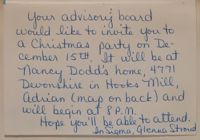 Your advisory board
would like to invite you to
a Christmas party on De-
cember 15th. It will be at
Nancy Dodd's home, 4771
Devonshire in Hooks Mill,
Adrian (map on back) and
will begin at 8 P.M.
Hope you'll be able to attend.
In Sigma, Glenna Strond